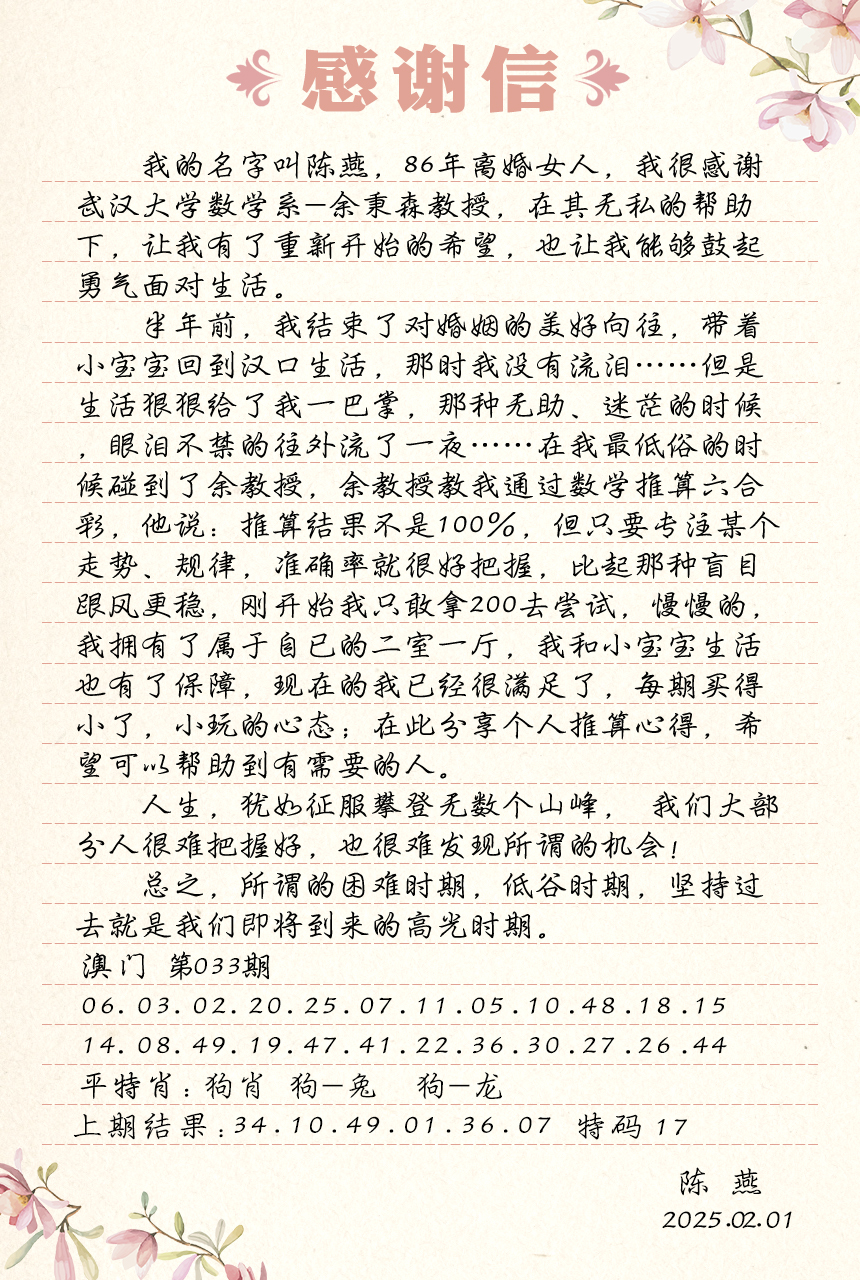 感谢信
我的名字叫陈燕，86年离婚女人，我很感谢
武汉大学数学系—余秉森教授，在其无私的帮助
下，让我有了重新开始的希望，也让我能够鼓起
勇气面对生活。
半年前，我结束了对婚姻的美好向往，带着
小宝宝回到汉口生活，那时我没有流泪……但是
生活狠狠给了我一巴掌，那种无助、迷茫的时候
，眼泪不禁的往外流了一夜……在我最低俗的时
候碰到了余教授，余教授教我通过数学推算六合
彩，他说：推算结果不是100%，但只要专注某个
走势、规律，准确率就很好把握，比起那种盲目
跟风更稳，刚开始我只敢拿200去尝试，慢慢的，
我拥有了属于自已的二室一厅，我和小宝宝生活
也有了保障，现在的我已经很满足了，每期买得
小了，小玩的心态；在此分享个人推算心得，希
望可以帮助到有需要的人。
人生，犹如征服攀登无数个山峰， 我们大部
分人很难把握好，也很难发现所谓的机会！
总之，所谓的困难时期，低谷时期，坚持过
去就是我们即将到来的高光时期。
澳门 第033期
06.03.02.20.25.07.11.05.10.48.18.15
14.08.49.19.47.41.22.36.30.27.26.44
平特肖：狗肖 狗—兔 狗—龙
上期结果：34.10.49.01.36.07 特码 17
陈 燕
2025.02.01